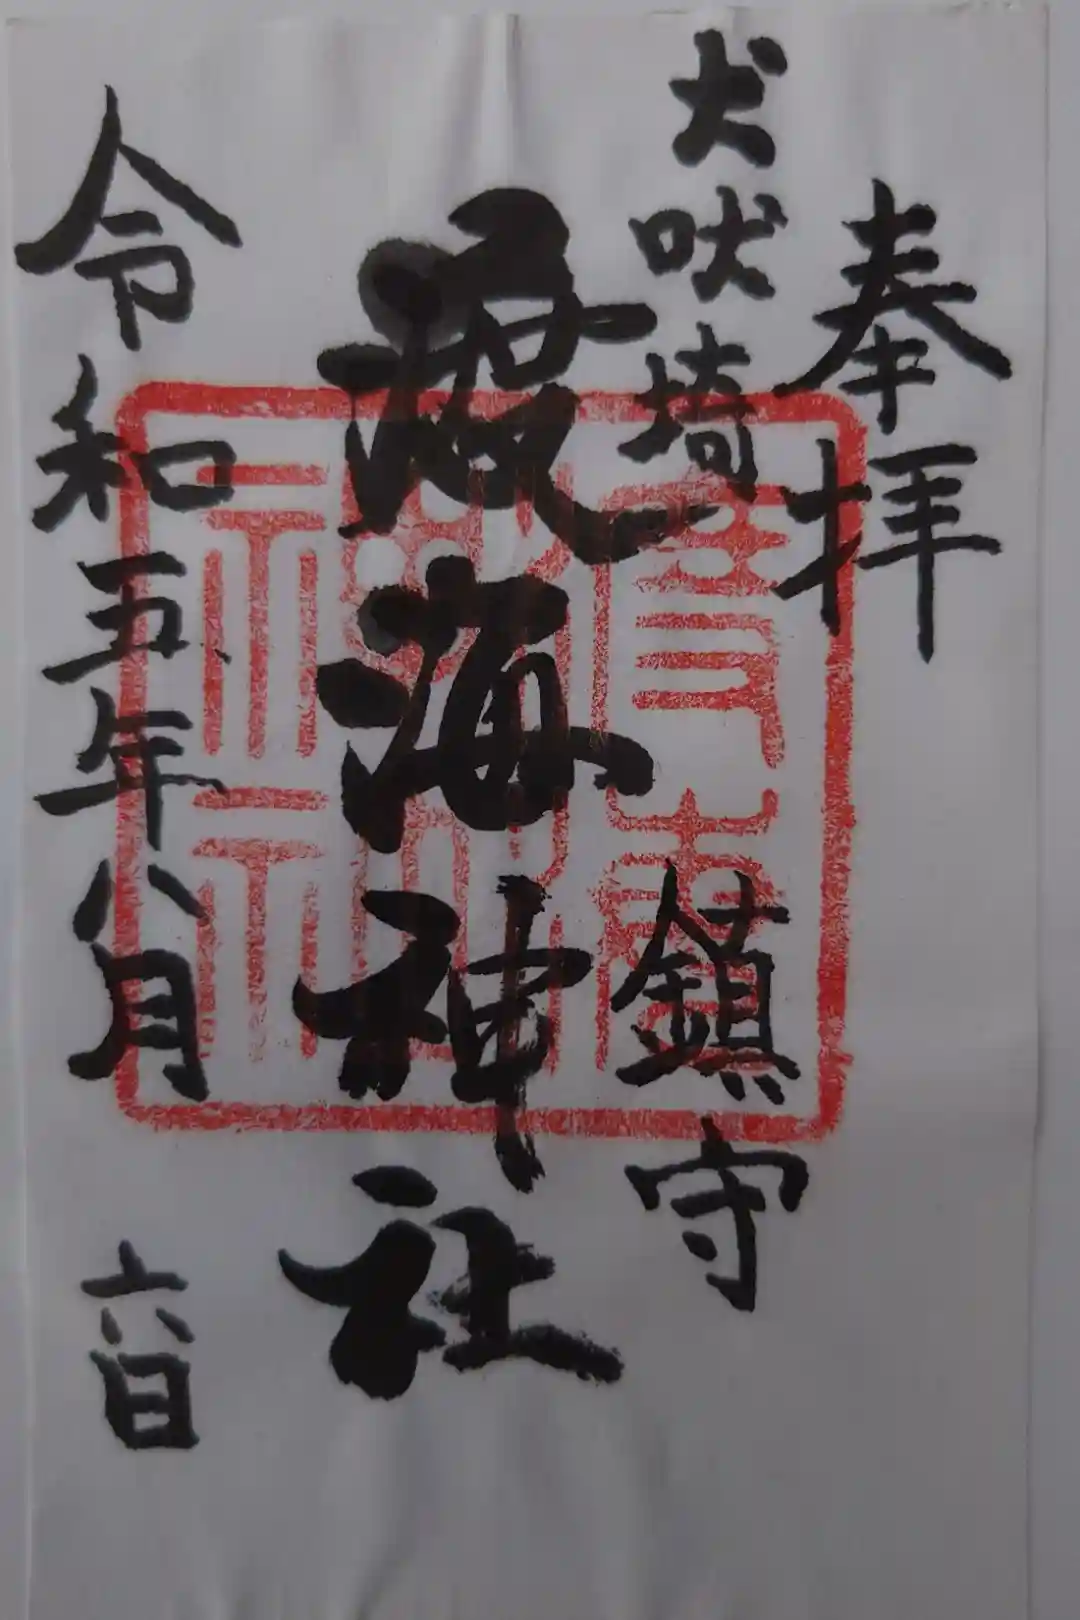 奉拝
犬吠埼鎮守
渡海神社
令和五年八月六日